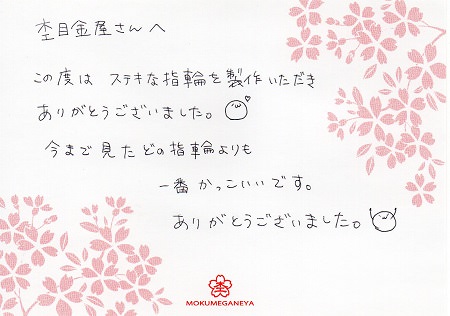 杢目金屋さんへ
この度は ステキな指輪を製作いただき
ありがとうございました。
今まで見たどの指輪よりも
一番かっこいいです。
ありがとうございました。
MOKUMEGANEYA